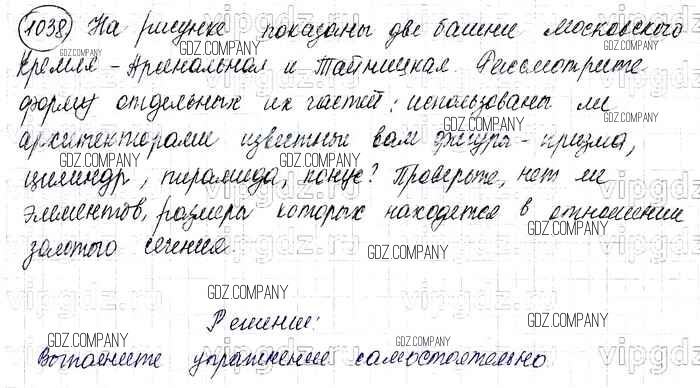 1038 На рисунке показаны две башни Московского
Кремля - Арсенальная и Тайницкая. Рассмотрите
форму отдельных их частей: использованы ли
архитекторами известные вам фигуры - призма,
цилиндр, пирамида, конус? Проверьте, нет ли
элементов, размеры которых находятся в отношении
золотого сечения.
Решение:
Выполните упражнение самостоятельно
GDZ.COMPANY
vipgdz.ru